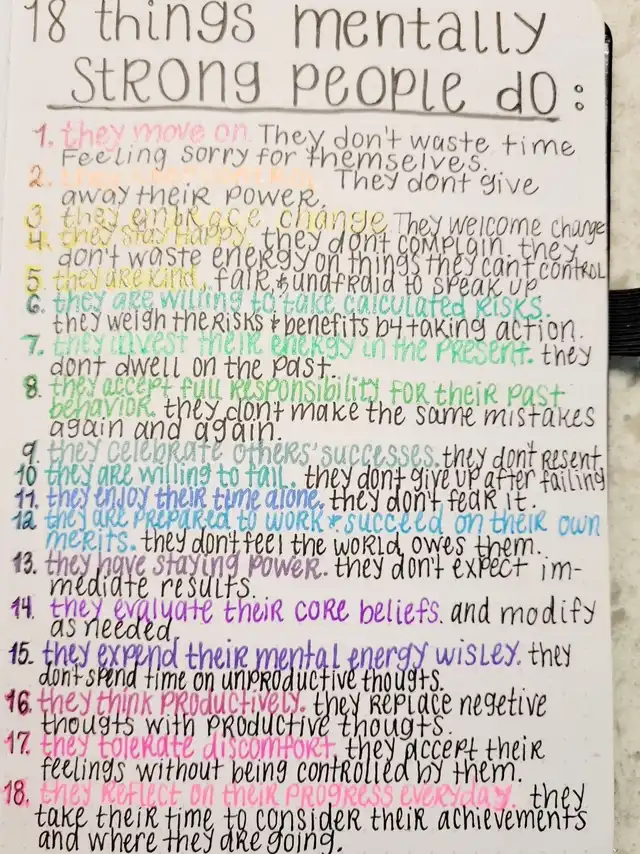 18 things mentally
strong people do:
1. they move on. They don't waste time
Feeling sorry for themselves.
2. They dont give
away their power.
3. they embrace change. They welcome change
4. they stay Happy. they dont complain. they
don't waste energy on things they cant control
5. they are kind, fair, & unafraid to speak up
6. they are willing to take calculated risks.
they weigh the risks & benefits b4 taking action.
7. they invest their energy in the present. they
dont dwell on the past.
8. they accept full responsibility for their past
behavior. they dont make the same mistakes
again and again.
9. they celebrate others' successes. they don't resent.
10 they are willing to fail. they dont give up after failing
11. they enjoy their time alone. they don't fear it.
12 they are prepared to work & succeed on their own
merits. they don't feel the world owes them.
13. they have staying power. they don't expect im-
mediate results.
14. they evaluate their core beliefs. and modify
as needed.
15. they expend their mental energy wisley. they
dont spend time on unproductive thougts.
16. they think productively. they replace negetive
thougts with productive thougts.
17. they tolerate discomfort. they accept their
feelings without being controlled by them.
18. they reflect on their progress everyday. they
take their time to consider their achievements
and where they are going.